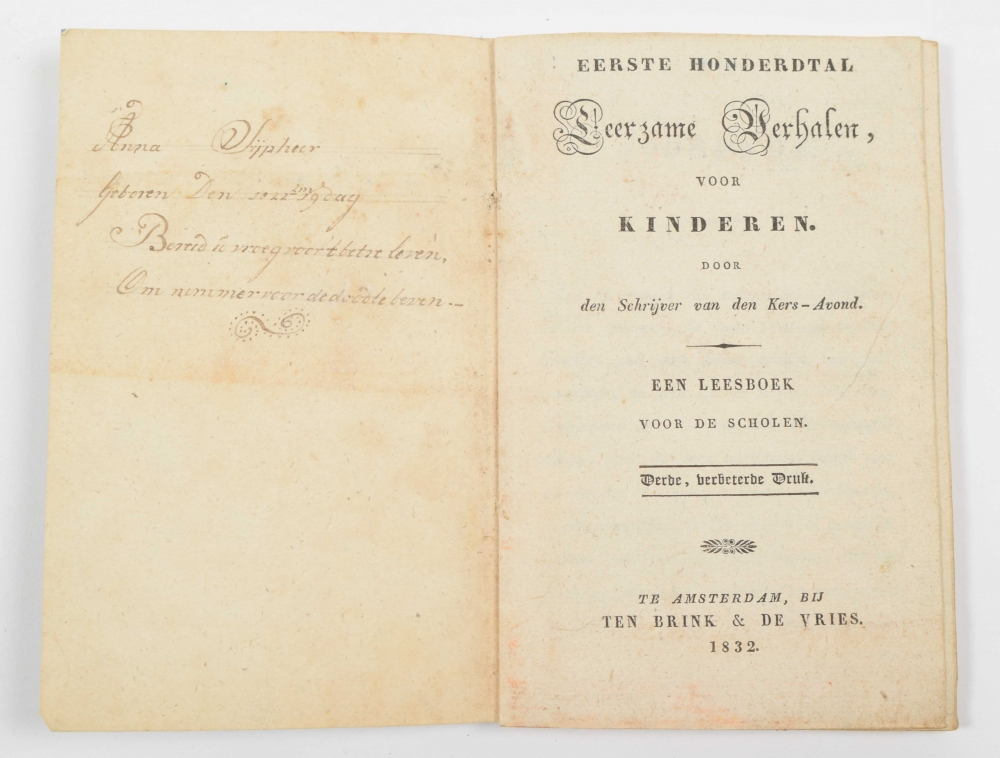 Anna Sijpheer
geboren Den 1822 19 dag
Bereid u vroeg voor t betre leven,
Om nimmer voor de dood te beven.
EERSTE HONDERDTAL
Leerzame Verhalen,
VOOR
KINDEREN.
DOOR
den Schrijver van den Kers-Avond.
EEN LEESBOEK
VOOR DE SCHOLEN.
Derde, verbeterde Druk.
TE AMSTERDAM, BIJ
TEN BRINK & DE VRIES.
1832.